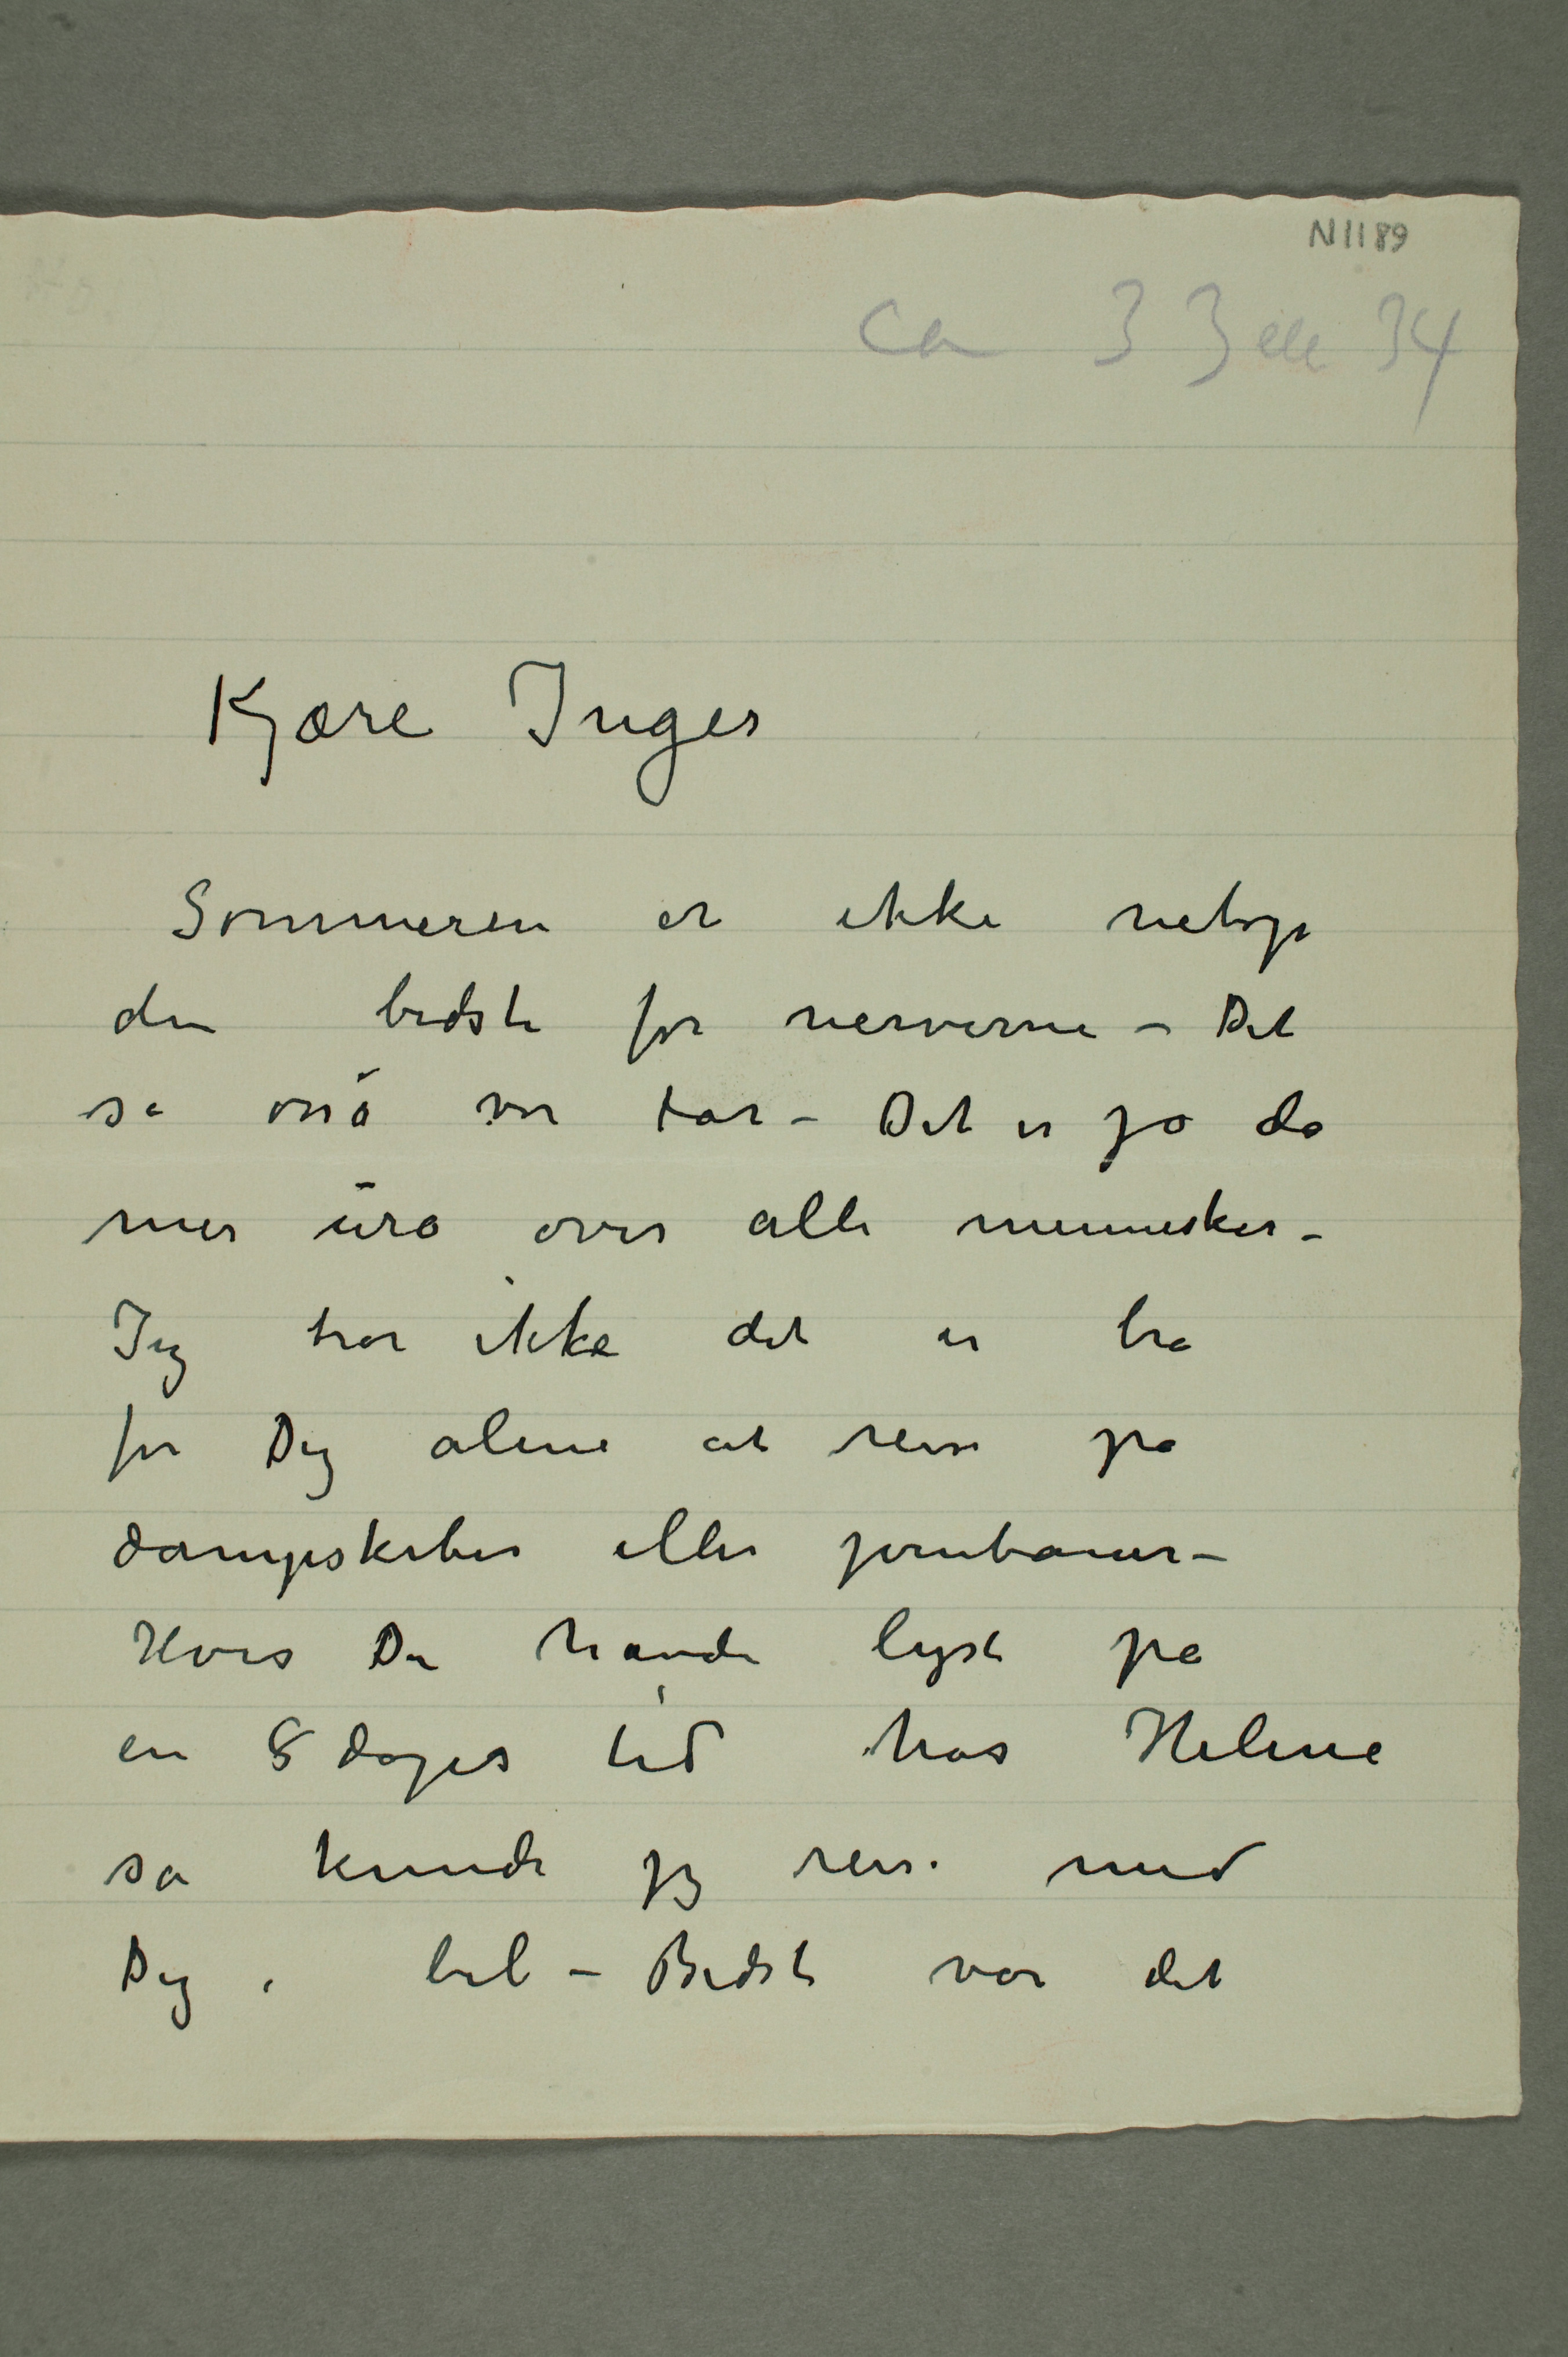 N 1189
ca 33 elle 34
Kjære Inger
Sommeren er ikke netop
den bedste for nerverne – Det
sa osså vor far – Det er jo da
mer uro over alle mennesker –
Jeg tror ikke det er bra
for Dig alene at reise på
dampskiber eller jernbaner –
Hvis Du havde lyst på
en 8 dages tid hos Helene
så kunde jeg reise med
Dig i bil – Bedst var det